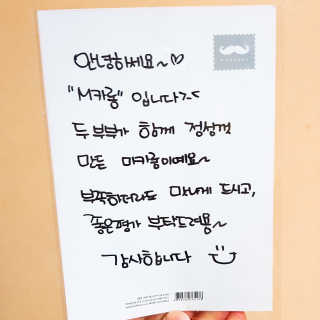 안녕하세요~♡
"M카롱" 입니다^^
두 부부가 함께 정성껏
만든 마카롱이예요~
부족하더라도 맛나게 드시고,
좋은평가 부탁드려용~
감사합니다